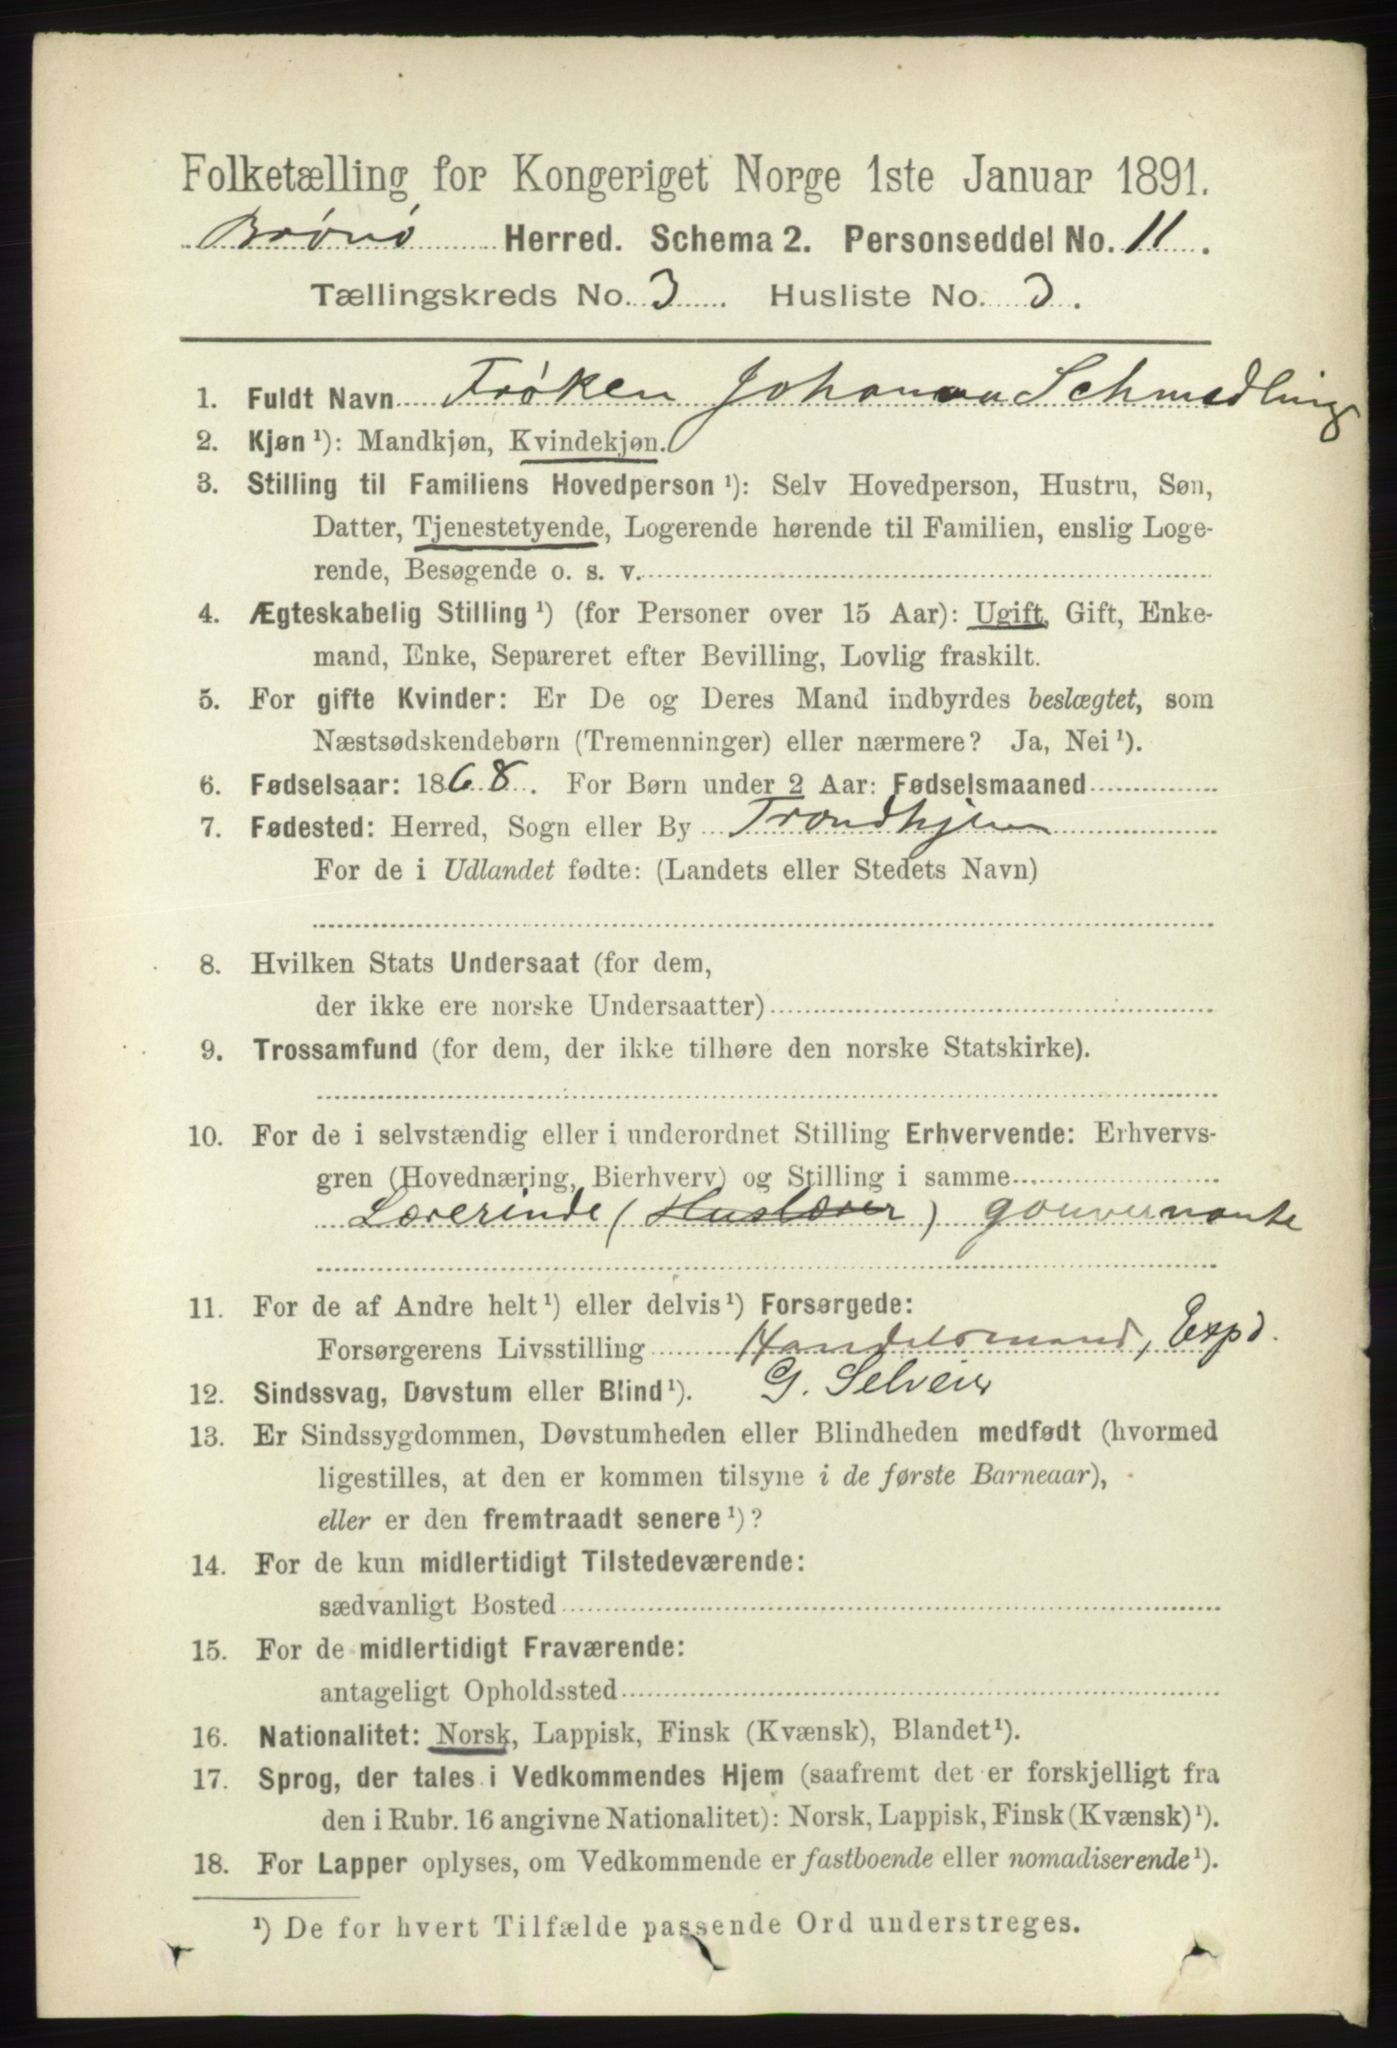 Folketælling for Kongeriget Norge 1ste Januar 1891.
Brønø Herred. Schema 2. Personseddel No. 11.
Tællingskreds No. 3. Husliste No. 3.
1. Fuldt Navn Frøken Johanna Schmedling
2. Kjøn ¹): Mandkjøn, Kvindekjøn.
3. Stilling til Familiens Hovedperson ¹): Selv Hovedperson, Hustru, Søn,
Datter, Tjenestetyende, Logerende hørende til Familien, enslig Loge-
rende, Besøgende o. s. v.
4. Ægteskabelig Stilling ¹) (for Personer over 15 Aar): Ugift, Gift, Enke-
mand, Enke, Separeret efter Bevilling, Lovlig fraskilt.
5. For gifte Kvinder: Er De og Deres Mand indbyrdes beslægtet, som
Næstsødskendebørn (Tremenninger) eller nærmere? Ja, Nei ¹).
6. Fødselsaar: 1868. For Børn under 2 Aar: Fødselsmaaned
7. Fødested: Herred, Sogn eller By Trondhjem
For de i Udlandet fødte: (Landets eller Stedets Navn)
8. Hvilken Stats Undersaat (for dem,
der ikke ere norske Undersaatter)
9. Trossamfund (for dem, der ikke tilhøre den norske Statskirke).
10. For de i selvstændig eller i underordnet Stilling Erhvervende: Erhvervs-
gren (Hovednæring, Bierhverv) og Stilling i samme
Lærerinde (Huslærer) gouvernante
11. For de af Andre helt ¹) eller delvis ¹) Forsørgede:
Forsørgerens Livsstilling Handelsmand, Expd.
G. Selveier
12. Sindssvag, Døvstum eller Blind ¹).
13. Er Sindssygdommen, Døvstumheden eller Blindheden medfødt (hvormed
ligestilles, at den er kommen tilsyne i de første Barneaar),
eller er den fremtraadt senere ¹)?
14. For de kun midlertidigt Tilstedeværende:
sædvanligt Bosted
15. For de midlertidigt Fraværende:
antageligt Opholdssted
16. Nationalitet: Norsk, Lappisk, Finsk (Kvænsk), Blandet ¹).
17. Sprog, der tales i Vedkommendes Hjem (saafremt det er forskjelligt fra
den i Rubr. 16 angivne Nationalitet): Norsk, Lappisk, Finsk (Kvænsk) ¹).
18. For Lapper oplyses, om Vedkommende er fastboende eller nomadiserende ¹).
¹) De for hvert Tilfælde passende Ord understreges.